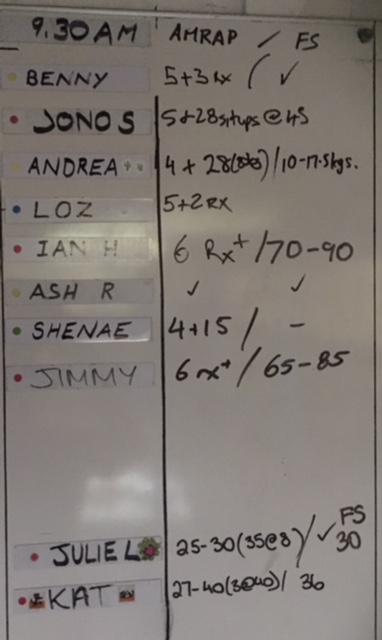 9.30AM AMRAP / FS
BENNY 5+3 Rx / ✓
JONO S 5+28 situps @ 45
ANDREA 4 + 28 / 10-17.5kgs.
LOZ 5+2 RX
IAN H 6 Rx+ / 70-90
ASH R ✓ ✓
SHENAE 4+15 / -
JIMMY 6 rx+ / 65-85
FS
JULIE L 25-30 (35@8) / ✓ 30
KAT 27-40 (3@40) / 36